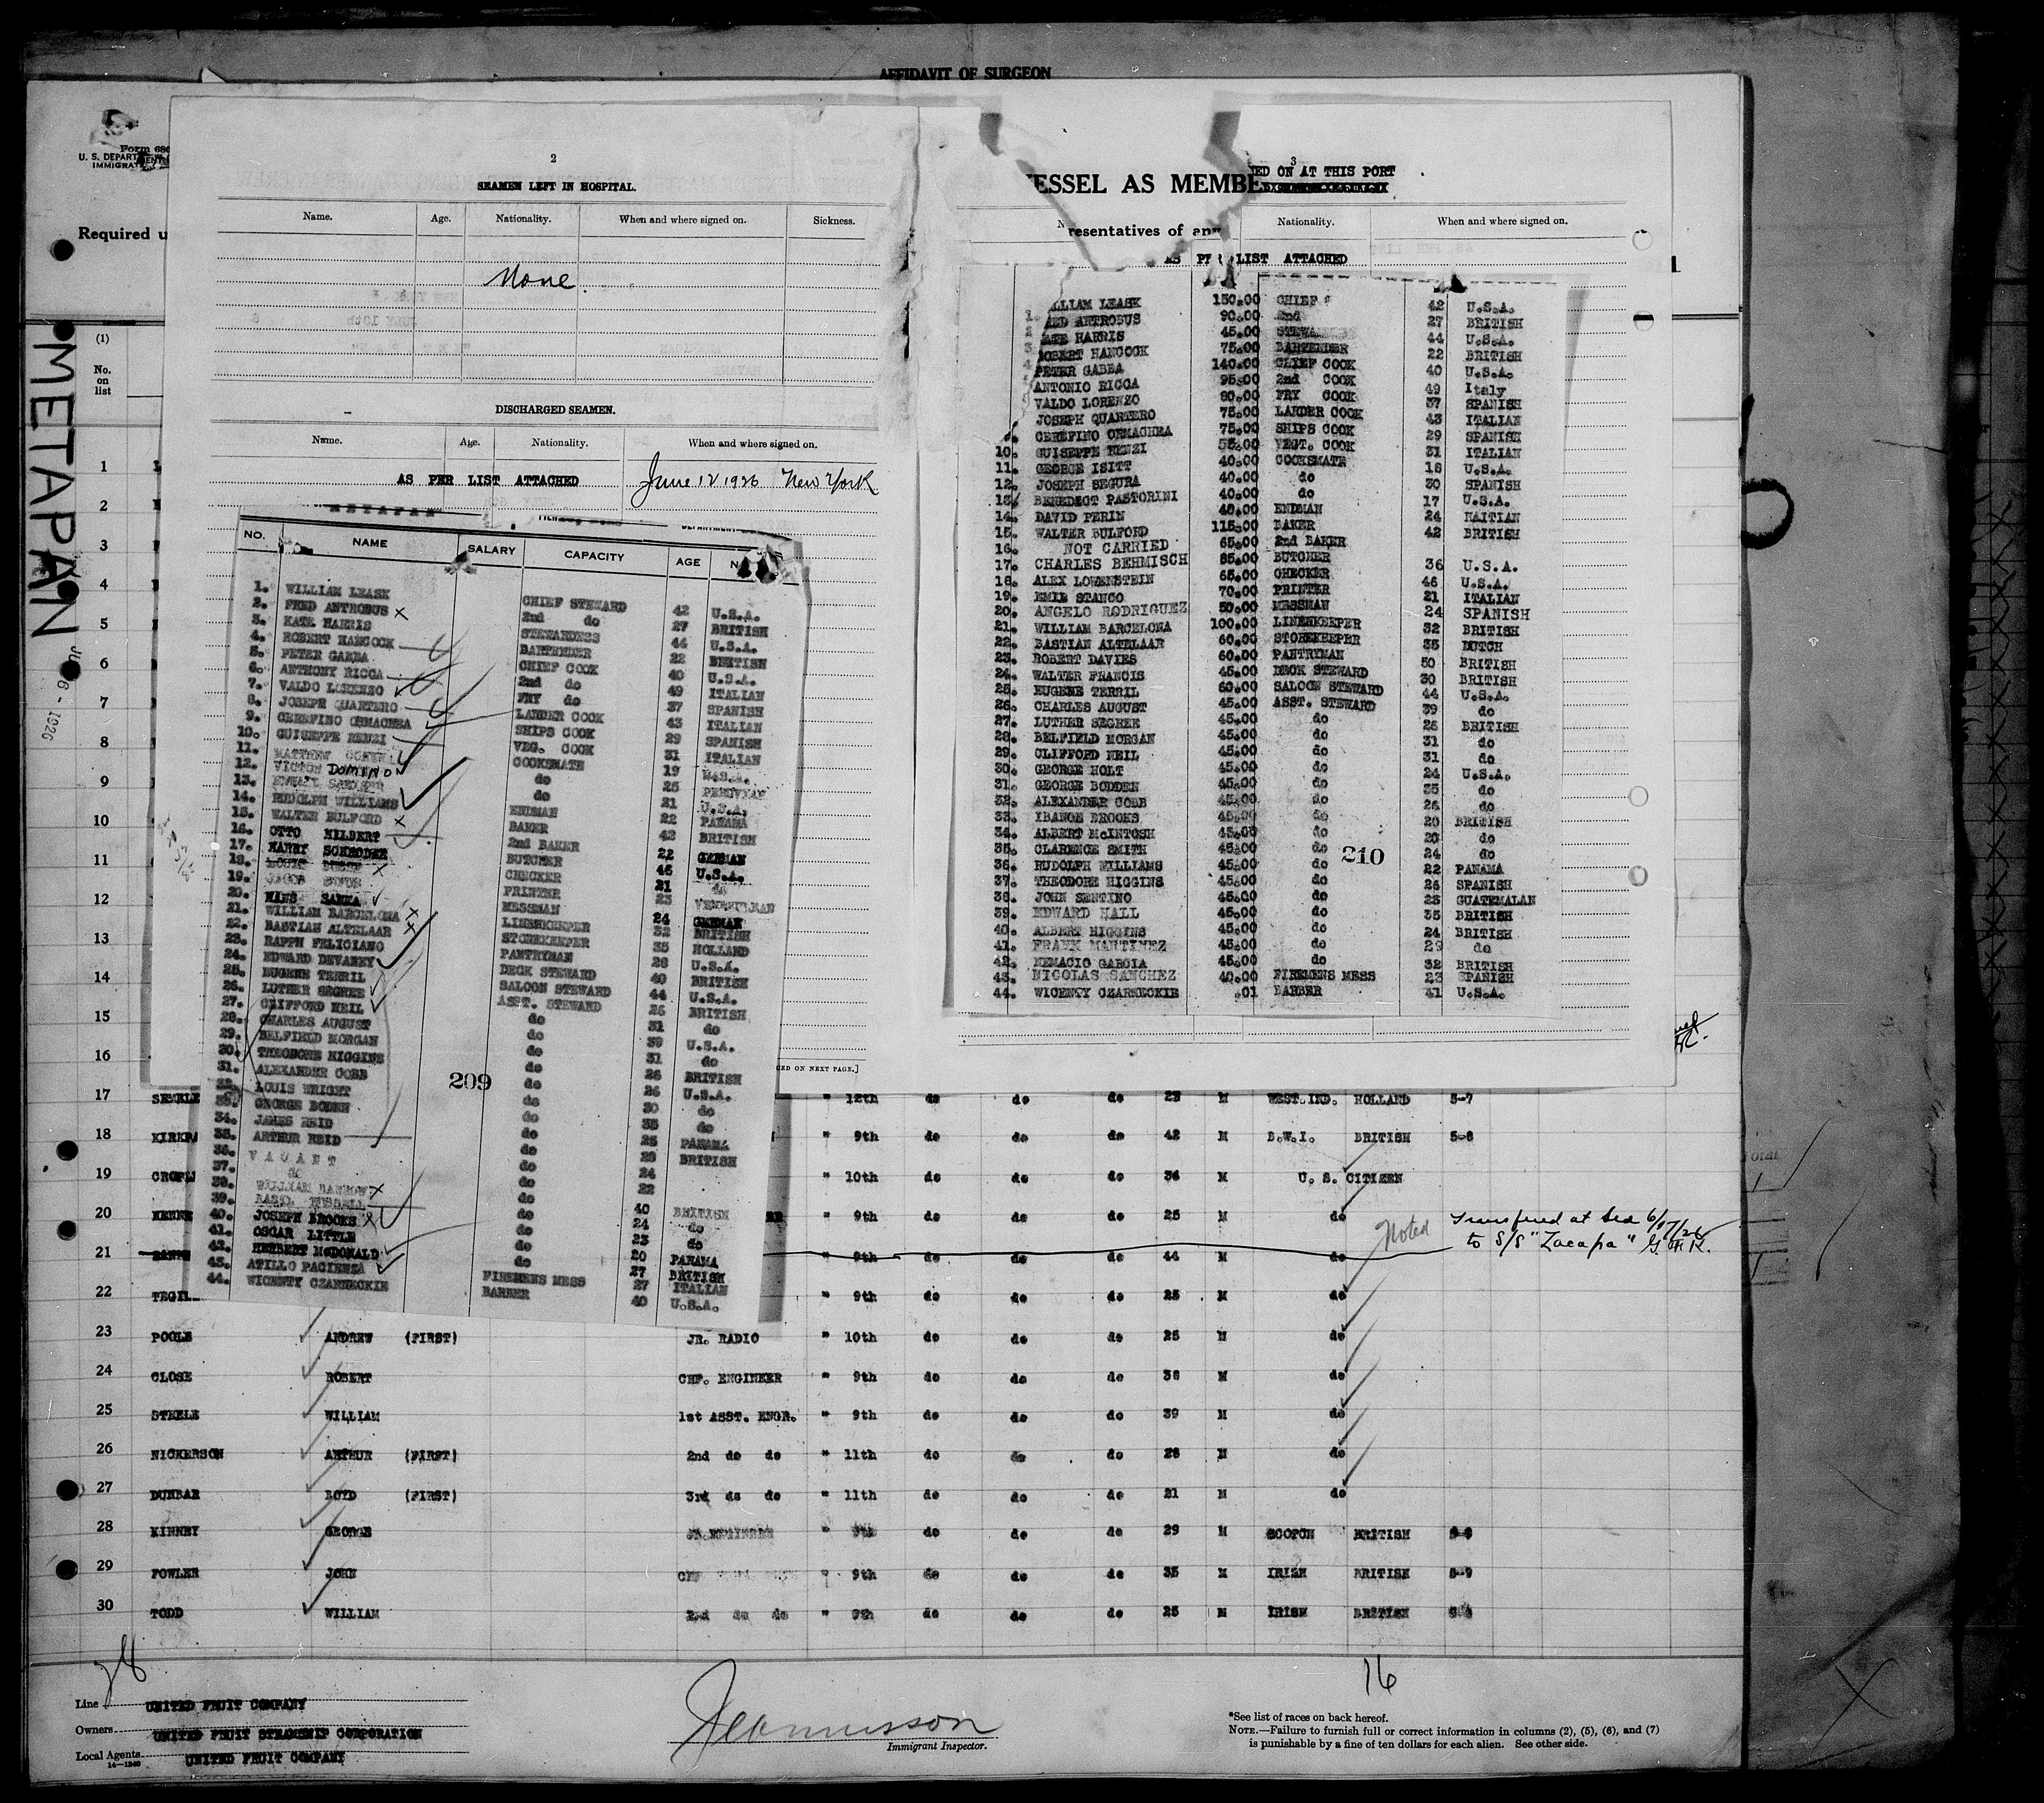 AFFIDAVIT OF SURGEON
Form 680
U. S. DEPARTMENT
IMMIGRAT
Required u
METAPAN
6 - 1926
(1)
No. on list
2
SEAMEN LEFT IN HOSPITAL.
Name. Age. Nationality. When and where signed on. Sickness.
None.
DISCHARGED SEAMEN.
Name. Age. Nationality. When and where signed on.
AS PER LIST ATTACHED June 12 1926 New York
METAPAN
NO. NAME SALARY CAPACITY AGE N
1. WILLIAM LEASK CHIEF STEWARD 42 U.S.A.
2. FRED ANTROBUS 2nd do 27 BRITISH
3. KATE HARRIS STEWARDESS 44 U.S.A.
4. ROBERT HANCOCK BARTENDER 22 BRITISH
5. PETER GABBA CHIEF COOK 40 U.S.A.
6. ANTHONY RICCA 2nd do 49 ITALIAN
7. VALDO LORENZO FRY do 37 SPANISH
8. JOSEPH QUARTERO LARDER COOK 43 ITALIAN
9. CEREFINO ORMACHEA SHIPS COOK 29 SPANISH
10. GUISEPPE RENZI VEG. COOK 31 ITALIAN
11. MATTHEW COOKSMATE 19 U.S.A.
12. VICTOR DOMINO do 25 PERUVIAN
13. do 21 U.S.A.
14. RUDOLPH WILLIAMS ENDMAN 22 PANAMA
15. WALTER BULFORD BAKER 42 BRITISH
16. OTTO HILBERT 2nd BAKER 22 GERMAN
17. HARRY SCHRODER BUTCHER 45 U.S.A.
18. LOUIS CHECKER 21 do
19. PRINTER 23 VENEZUELAN
20. HANS BANKA MESSMAN 24 GERMAN
21. WILLIAM BARCELONA LINENKEEPER 32 BRITISH
22. BASTIAN ALTELAAR STOREKEEPER 35 HOLLAND
23. RAPPH FELICIANO PANTRYMAN 26 U.S.A.
24. EDWARD DEVANEY DECK STEWARD 40 BRITISH
25. EUGENE TERRIL SALOON STEWARD 44 U.S.A.
26. LUTHER SEGREE ASST. STEWARD 26 BRITISH
27. CLIFFORD NEIL do 31 do
28. CHARLES AUGUST do 39 U.S.A.
29. BELFIELD MORGAN do 31 do
30. THEODORE HIGGINS do 26 BRITISH
31. ALEXANDER COBB do 26 U.S.A.
32. LOUIS WRIGHT do 30 do
33. GEORGE BODEN do 35 do
34. JAMES REID do 25 PANAMA
35. ARTHUR REID do 23 BRITISH
36. VACANT do 24
37. do do 22
38. WILLIAM BARROW do 40 BRITISH
39. BASIL RUSSELL do 24 do
40. JOSEPH BROOKS do 23 do
41. OSCAR LITTLE do 20 PANAMA
42. HERBERT McDONALD do 27 BRITISH
43. ATILLO PACIENZA FIREMENS MESS 27 ITALIAN
44. WICENTY CZARNECKIE BARBER 40 U.S.A.
209
ED ON NEXT PAGE.]
3
ED ON AT THIS PORT
VESSEL AS MEMBE
N Nationality. When and where signed on.
resentatives of any
AS PER LIST ATTACHED
1. LLIAM LEASK 150.00 CHIEF 42 U.S.A.
2 RED ANTROBUS 90.00 2nd 27 BRITISH
3 ATE HARRIS 45.00 STEWA 44 U.S.A.
4 ROBERT HANCOCK 75.00 BARTENDER 22 BRITISH
PETER GABBA 140.00 CHIEF COOK 40 U.S.A.
ANTONIO RICCA 95.00 2nd COOK 49 Italy
VALDO LORENZO 80.00 FRY COOK 37 SPANISH
JOSEPH QUARTERO 75.00 LARDER COOK 43 ITALIAN
CEREFINO ORMACHEA 75.00 SHIPS COOK 29 SPANISH
10. GUISEPPE RENZI 55.00 VEGT. COOK 31 ITALIAN
11. GEORGE ISITT 40.00 COOKSMATE 18 U.S.A.
12. JOSEPH SEGURA 40.00 do 30 SPANISH
13. BENEDICT PASTORINI 40.00 do 17 U.S.A.
14. DAVID PERIN 40.00 ENDMAN 24 HAITIAN
15. WALTER BULFORD 115.00 BAKER 42 BRITISH
16. NOT CARRIED 65.00 2nd BAKER
17. CHARLES BEHMISCH 85.00 BUTCHER 36 U.S.A.
18. ALEX LOWENSTEIN 65.00 CHECKER 46 U.S.A.
19. EMIL STANCO 70.00 PRINTER 21 ITALIAN
20. ANGELO RODRIGUEZ 50.00 MESSMAN 24 SPANISH
21. WILLIAM BARCELONA 100.00 LINENKEEPER 32 BRITISH
22. BASTIAN ALTELAAR 60.00 STOREKEEPER 35 DUTCH
23. ROBERT DAVIES 60.00 PANTRYMAN 50 BRITISH
24. WALTER FRANCIS 45.00 DECK STEWARD 30 BRITISH
25. EUGENE TERRIL 60.00 SALOON STEWARD 44 U.S.A.
26. CHARLES AUGUST 45.00 ASST. STEWARD 39 do
27. LUTHER SEGREE 45.00 do 26 BRITISH
28. BELFIELD MORGAN 45.00 do 31 do
29. CLIFFORD NEIL 45.00 do 31 do
30. GEORGE HOLT 45.00 do 24 U.S.A.
31. GEORGE BODDEN 45.00 do 35 do
32. ALEXANDER COBB 45.00 do 26 do
33. IBANOE BROOKS 45.00 do 20 BRITISH
34. ALBERT McINTOSH 45.00 do 20 do
35. CLARENCE SMITH 45.00 do 24 do
36. RUDOLPH WILLIAMS 45.00 do 22 PANAMA
37. THEODORE HIGGINS 45.00 do 26 SPANISH
38. JOHN SENTINO 45.00 do 23 GUATEMALAN
39. EDWARD HALL 45.00 do 35 BRITISH
40. ALBERT HIGGINS 45.00 do 24 BRITISH
41. FRANK MARTINEZ 45.00 do 29 do
42. NEMACIO GARCIA 45.00 do 32 BRITISH
43. NICOLAS SANCHEZ 40.00 FIREMENS MESS 23 SPANISH
44. WICENTY CZARNECKIE .01 BARBER 41 U.S.A.
210
1
2
3
4
5
6
7
8
9
10
11
12
13
14
15
16
17 " 12th do do do 23 M WEST.IND. HOLLAND 5-7
18 KIRKPA " 9th do do do 42 M B.W.I. BRITISH 5-8
19 CROPL " 10th do do do 34 M U. S. CITIZEN
20 KENNE " 9th do do do 25 M do
Noted Transferred at Sea 6/17/26 to S/S "Zacapa" G.H.K.
21 " 9th do do do 44 M do
22 TEGIL " 9th do do do 23 M do
23 POOLE ANDREW (FIRST) JR. RADIO " 10th do do do 25 M do
24 CLOSE ROBERT CHF. ENGINEER " 9th do do do 38 M do
25 STEELE WILLIAM 1st ASST. ENGR. " 9th do do do 39 M do
26 NICKERSON ARTHUR (FIRST) 2nd do do " 11th do do do 28 M do
27 DUNBAR BOYD (FIRST) 3rd do do " 11th do do do 21 M do
28 KINNEY GEORGE JR. ENGINEER " 9th do do do 29 M SCOTCH BRITISH
29 FOWLER JOHN CHF " 9th do do do 35 M IRISH BRITISH 5-9
30 TODD WILLIAM 2nd do do " 9th do do do 25 M IRISH BRITISH
16
Line UNITED FRUIT COMPANY
Owners UNITED FRUIT STEAMSHIP CORPORATION
Local Agents UNITED FRUIT COMPANY
14—1240
Immigrant Inspector.
*See list of races on back hereof.
NOTE.—Failure to furnish full or correct information in columns (2), (5), (6), and (7)
is punishable by a fine of ten dollars for each alien. See other side.